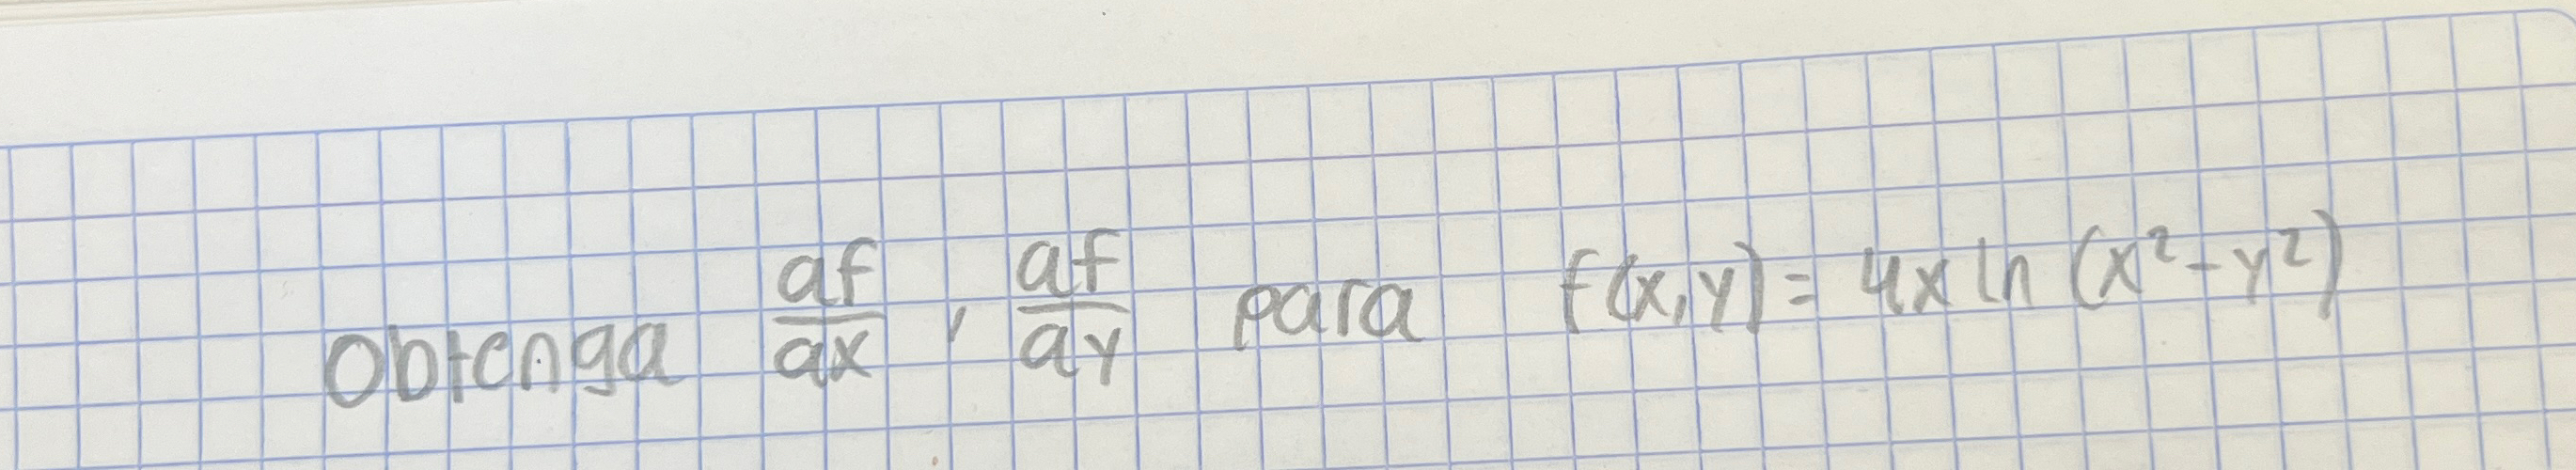 Obtenga af/ax, af/ay para f(x,y)= 4x ln (x²-y²)